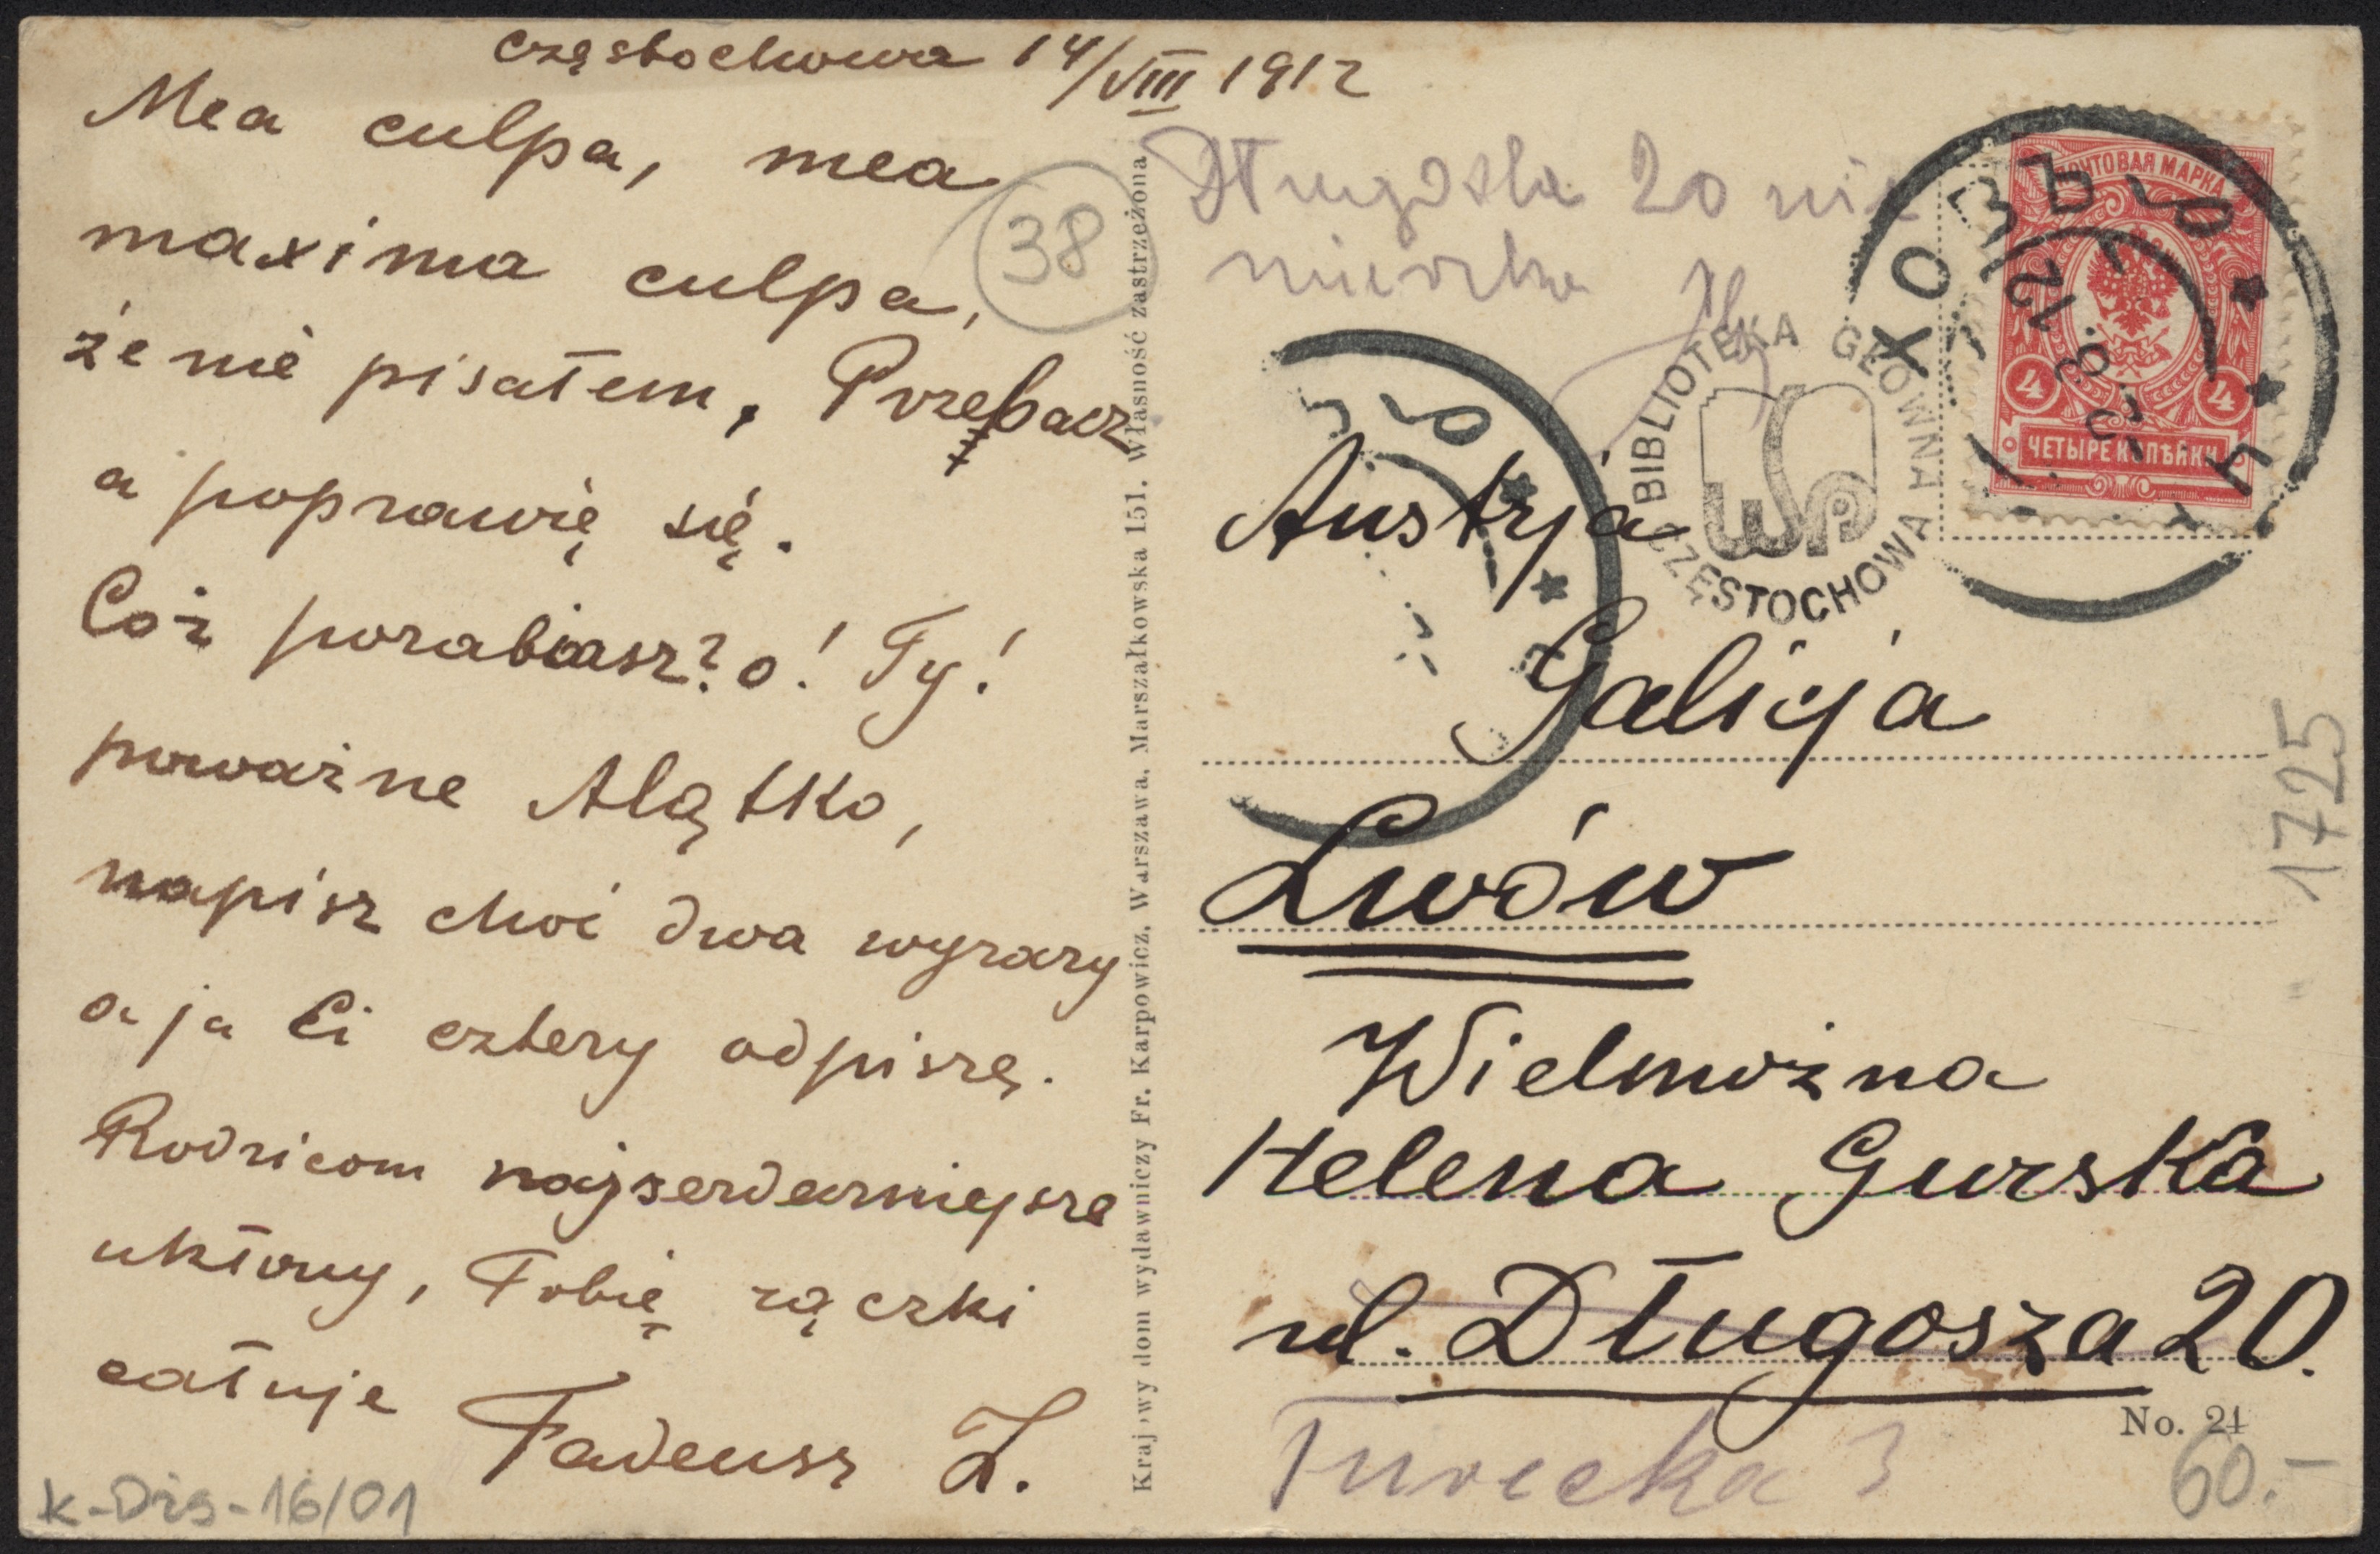 Częstochowa 14/VIII 1912
Mea culpa, mea
maxima culpa,
że nie pisałem, Przebacz
a poprawię się.
Cóż porabiasz? o! Ty!
poważne Alątko,
napisz choć dwa wyrazy
a ja Ci cztery odpiszę.
Rodzicom najserdeczniejsze
ukłony, Tobię rączki
całuje
Tadeusz Z.
k-Dzs-16/01
38
Krajowy dom wydawniczy Fr. Karpowicz, Warszawa, Marszałkowska 151. Własność zastrzeżona
Długosza 20 nie
mieszka
ПОЧТОВАЯ МАРКА
4 4
ЧЕТЫРЕ КОПѢЙКИ
12
8
BIBLIOTEKA GŁÓWNA
WSP
CZĘSTOCHOWA
Austrja
Galicja
Lwów
Wielmożna
Helena Gurska
ul. Długosza 20.
No. 24
Turecka 3
60.-
1725